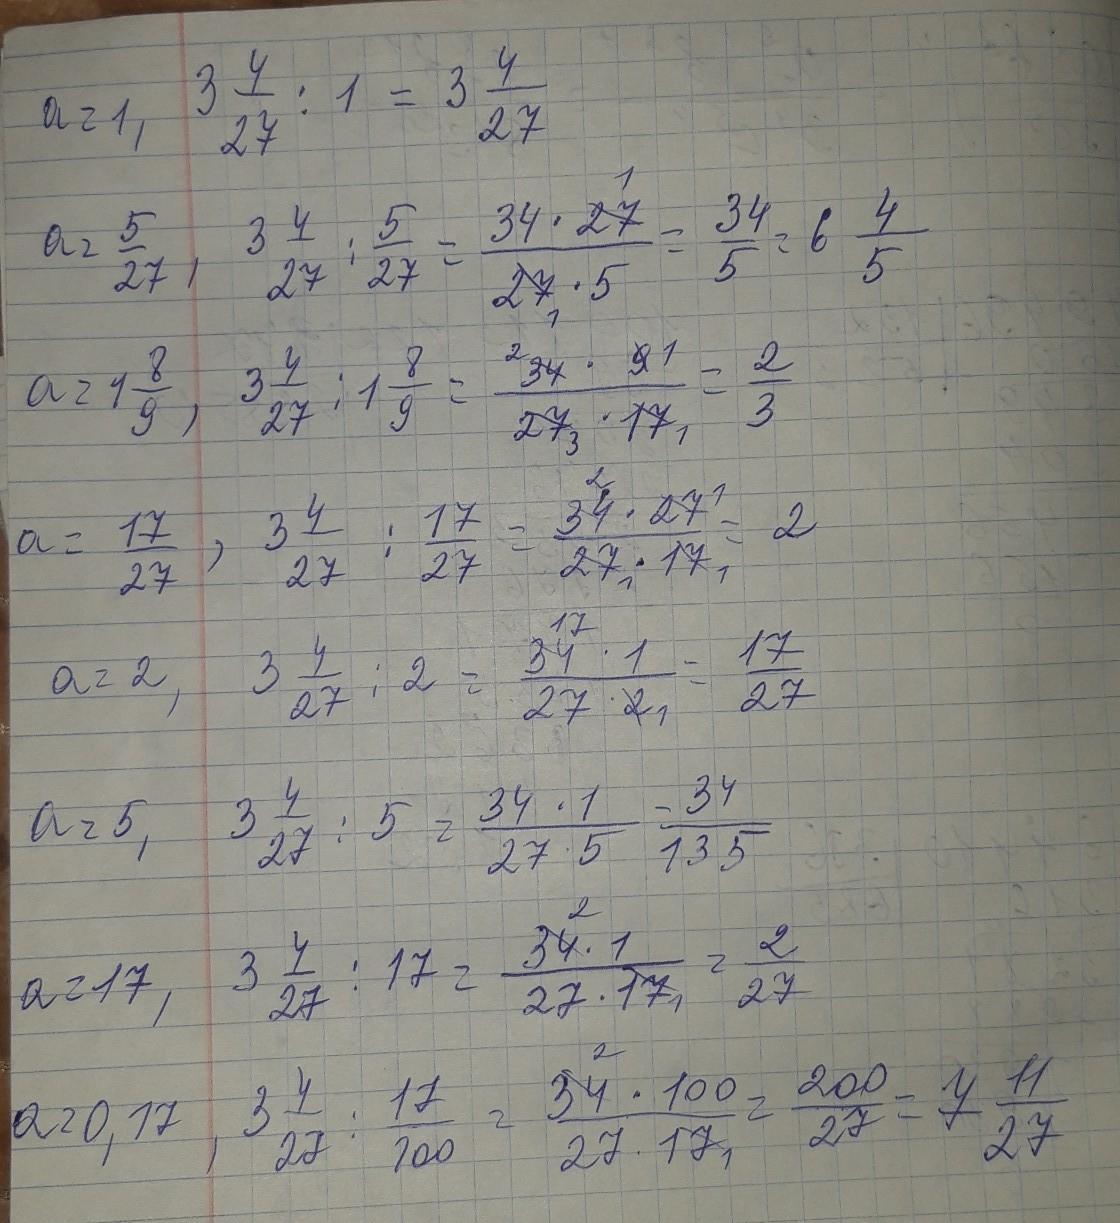 a=1, 3 4/27 : 1 = 3 4/27
a= 5/27, 3 4/27 : 5/27 = (34 · 27¹)/(27₁ · 5) = 34/5 = 6 4/5
a=1 8/9, 3 4/27 : 1 8/9 = (²34 · 9¹)/(27₃ · 17₁) = 2/3
a= 17/27, 3 4/27 : 17/27 = (34² · 27¹)/(27₁ · 17₁) = 2
a=2, 3 4/27 : 2 = (34¹⁷ · 1)/(27 · 2₁) = 17/27
a=5, 3 4/27 : 5 = (34 · 1)/(27 · 5) = 34/135
a=17, 3 4/27 : 17 = (34² · 1)/(27 · 17₁) = 2/27
a=0,17, 3 4/27 : 17/100 = (34² · 100)/(27 · 17₁) = 200/27 = 7 11/27